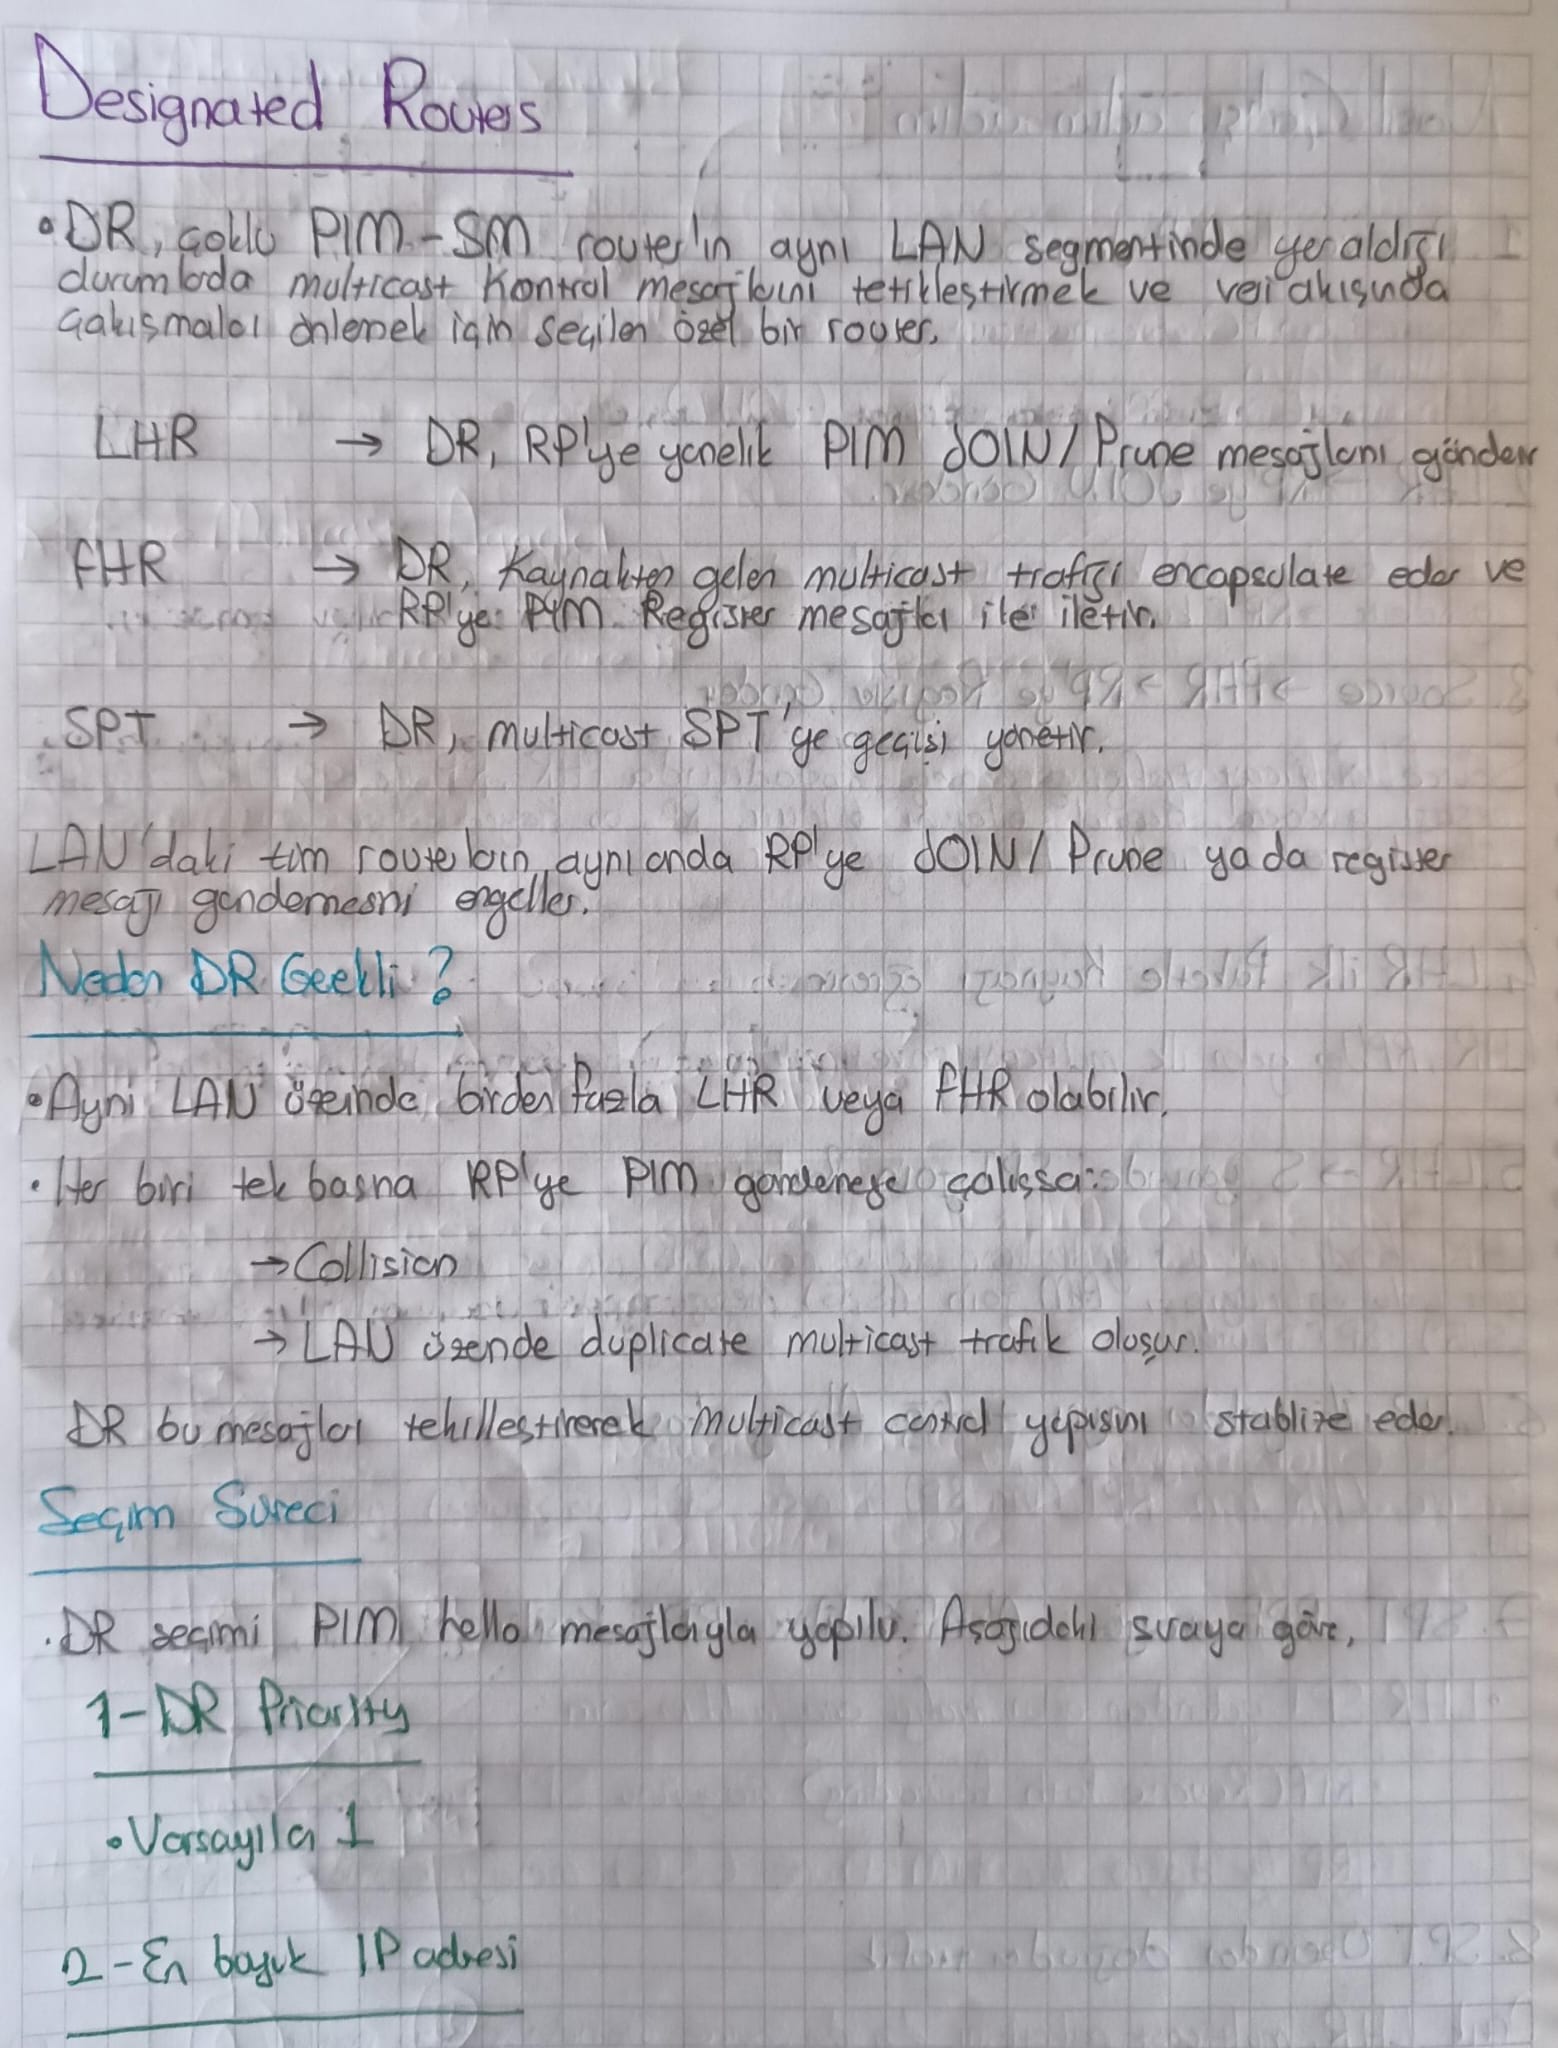 Designated Routers
• DR, çoklu PIM-SM router'ın aynı LAN segmentinde yer aldığı
durumlarda multicast kontrol mesajlarını tetikleştirmek ve veri akışında
çakışmaları önlemek için seçilen özel bir router.
LHR → DR, RP'ye yönelik PIM JOIN/Prune mesajlarını gönderir
FHR → DR, Kaynakten gelen multicast trafiği encapsulate eder ve
RP'ye PIM Register mesajları ile iletir.
SPT → DR, multicast SPT'ye geçişi yönetir.
LAN'daki tüm routerların aynı anda RP'ye JOIN/Prune ya da register
mesajı göndermesini engeller.
Neden DR Gerekli?
• Ayni LAN üzerinde birden fazla LHR veya FHR olabilir.
• Her biri tek başına RP'ye PIM göndermeye çalışsa:
→ Collision
→ LAN üzerinde duplicate multicast trafik oluşur.
DR bu mesajları tekilleştirerek multicast control yapısını stablize eder.
Seçim Süreci
• DR seçimi PIM hello mesajlarıyla yapılır. Aşağıdaki sıraya göre,
1-DR Priority
• Varsayıla 1
2-En büyük IP adresi